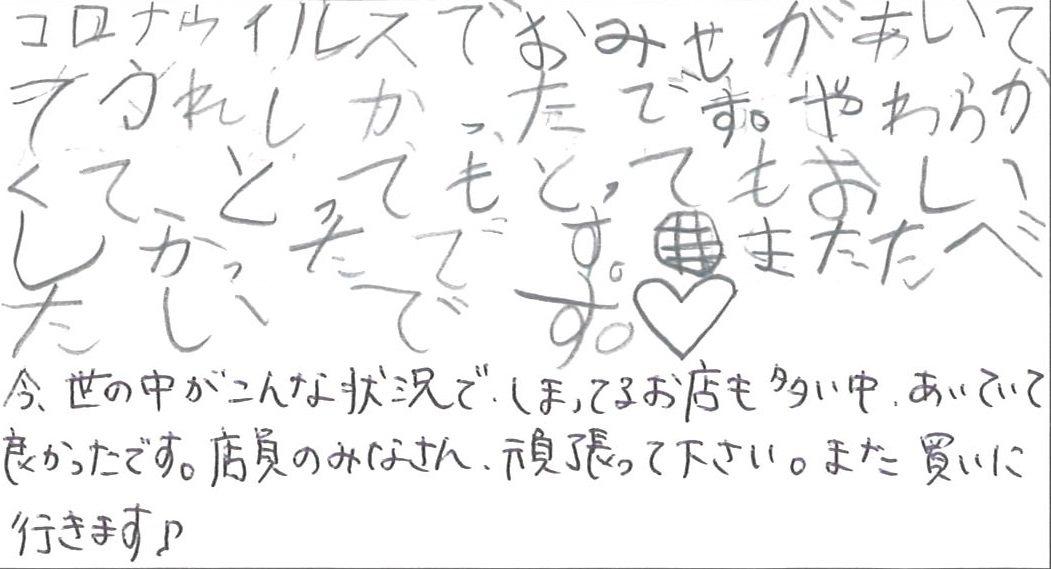 コロナウイルスでおみせがあいて
てうれしかったです。やわらか
くて、とってもとってもおいし
しかったです。またたべ
たいです。
今、世の中がこんな状況で、しまってるお店も多い中、あいていて
良かったです。店員のみなさん、頑張って下さい。また買いに
行きます♪